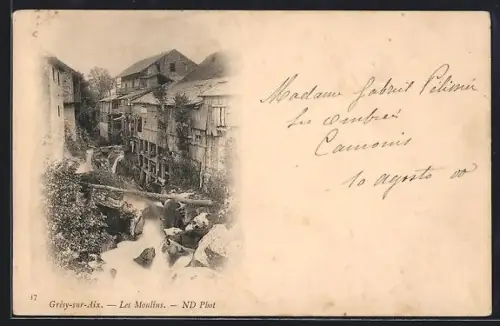 Madame Gabriel Pélissier
Les ombres
Camonis
10 agosto 00
17
Grésy-sur-Aix. — Les Moulins. — ND Phot